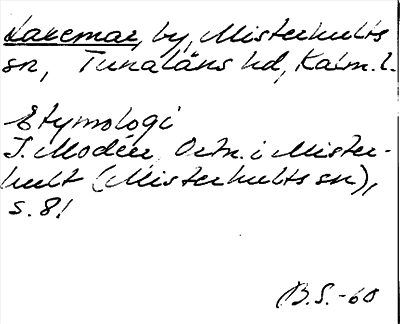 Lakemar, by, Misterhults
sn, Tunaläns hd, Kalm. l.
Etymologi
I. Modéer, Ortn. i Mister-
hult (Misterhults sn),
s. 8!
B.S.-60